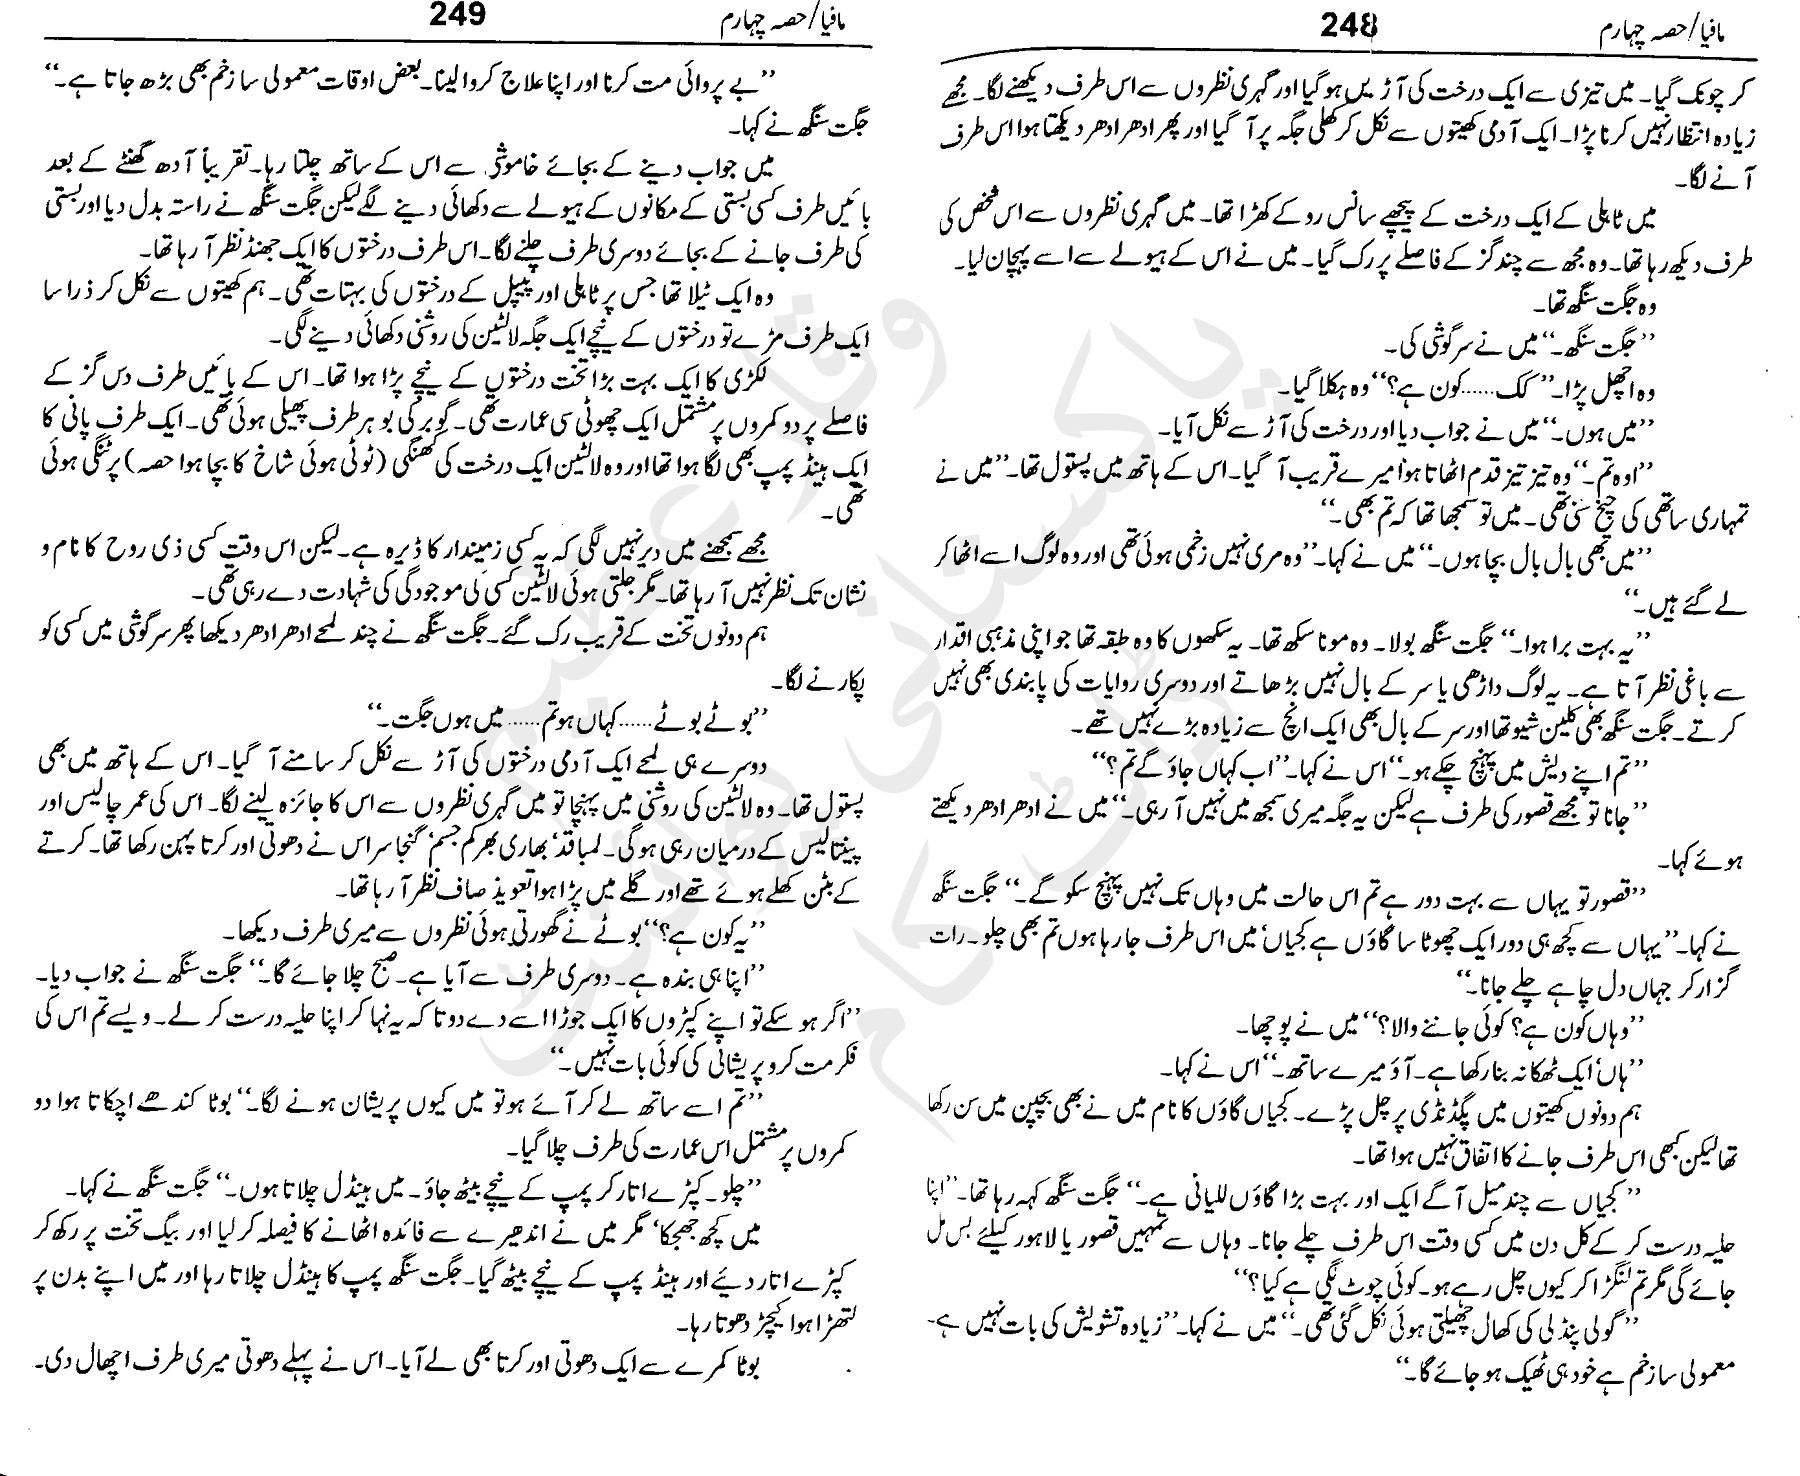 مافیا/حصہ چہارم
248
کر چونک گیا۔ میں تیزی سے ایک درخت کی آڑ میں ہو گیا اور گہری نظروں سے اس طرف دیکھنے لگا۔ مجھے
زیادہ انتظار نہیں کرنا پڑا۔ ایک آدمی کھیتوں سے نکل کر کھلی جگہ پر آ گیا اور پھر ادھر ادھر دیکھتا ہوا اس طرف
آنے لگا۔
میں ٹاہلی کے ایک درخت کے پیچھے سانس روکے کھڑا تھا۔ میں گہری نظروں سے اس شخص کی
طرف دیکھ رہا تھا۔ وہ مجھ سے چند گز کے فاصلے پر رک گیا۔ میں نے اس کے ہیولے سے اسے پہچان لیا۔
وہ جگت سنگھ تھا۔
”جگت سنگھ۔“ میں نے سرگوشی کی۔
وہ اچھل پڑا۔ ”کک......کون ہے؟“ وہ ہکلا گیا۔
”میں ہوں۔“ میں نے جواب دیا اور درخت کی آڑ سے نکل آیا۔
”اوہ تم۔“ وہ تیز تیز قدم اٹھاتا ہوا میرے قریب آ گیا۔ اس کے ہاتھ میں پستول تھا۔ ”میں نے
تمہاری ساتھی کی چیخ سنی تھی۔ میں تو سمجھا تھا کہ تم بھی۔“
”میں بھی بال بال بچا ہوں۔“ میں نے کہا۔ ”وہ مری نہیں زخمی ہوئی تھی اور وہ لوگ اسے اٹھا کر
لے گئے ہیں۔“
”یہ بہت برا ہوا۔“ جگت سنگھ بولا۔ وہ مونا سکھ تھا۔ یہ سکھوں کا وہ طبقہ تھا جو اپنی مذہبی اقدار
سے باغی نظر آتا ہے۔ یہ لوگ داڑھی یا سر کے بال نہیں بڑھاتے اور دوسری روایات کی پابندی بھی نہیں
کرتے۔ جگت سنگھ بھی کلین شیو تھا اور سر کے بال بھی ایک انچ سے زیادہ بڑے نہیں تھے۔
”تم اپنے دیش میں پہنچ چکے ہو۔“ اس نے کہا۔ ”اب کہاں جاؤ گے تم؟“
”جانا تو مجھے قصور کی طرف ہے لیکن یہ جگہ میری سمجھ میں نہیں آ رہی۔“ میں نے ادھر ادھر دیکھتے
ہوئے کہا۔
”قصور تو یہاں سے بہت دور ہے تم اس حالت میں وہاں تک نہیں پہنچ سکو گے۔“ جگت سنگھ
نے کہا۔ ”یہاں سے کچھ ہی دور ایک چھوٹا سا گاؤں ہے کجیاں‘ میں اس طرف جا رہا ہوں تم بھی چلو۔ رات
گزار کر جہاں دل چاہے چلے جانا۔“
”وہاں کون ہے؟ کوئی جاننے والا؟“ میں نے پوچھا۔
”ہاں‘ ایک ٹھکانہ بنا رکھا ہے۔ آؤ میرے ساتھ۔“ اس نے کہا۔
ہم دونوں کھیتوں میں پگڈنڈی پر چل پڑے۔ کجیاں گاؤں کا نام میں نے بھی بچپن میں سن رکھا
تھا لیکن کبھی اس طرف جانے کا اتفاق نہیں ہوا تھا۔
”کجیاں سے چند میل آگے ایک اور بہت بڑا گاؤں للیانی ہے۔“ جگت سنگھ کہہ رہا تھا۔ ”اپنا
حلیہ درست کر کے کل دن میں کسی وقت اس طرف چلے جانا۔ وہاں سے تمہیں قصور یا لاہور کیلئے بس مل
جائے گی مگر تم لنگڑا کر کیوں چل رہے ہو۔ کوئی چوٹ لگی ہے کیا؟“
”گولی پنڈلی کی کھال چھیلتی ہوئی نکل گئی تھی۔“ میں نے کہا۔ ”زیادہ تشویش کی بات نہیں ہے۔
معمولی سا زخم ہے خود ہی ٹھیک ہو جائے گا۔“
مافیا/حصہ چہارم
249
”بے پروائی مت کرنا اور اپنا علاج کروا لینا۔ بعض اوقات معمولی سا زخم بھی بڑھ جاتا ہے۔“
جگت سنگھ نے کہا۔
میں جواب دینے کے بجائے خاموشی سے اس کے ساتھ چلتا رہا۔ تقریباً آدھ گھنٹے کے بعد
بائیں طرف کسی بستی کے مکانوں کے ہیولے سے دکھائی دینے لگے لیکن جگت سنگھ نے راستہ بدل دیا اور بستی
کی طرف جانے کے بجائے دوسری طرف چلنے لگا۔ اس طرف درختوں کا ایک جھنڈ نظر آ رہا تھا۔
وہ ایک ٹیلا تھا جس پر ٹاہلی اور پیپل کے درختوں کی بہتات تھی۔ ہم کھیتوں سے نکل کر ذرا سا
ایک طرف مڑے تو درختوں کے نیچے ایک جگہ لالٹین کی روشنی دکھائی دینے لگی۔
لکڑی کا ایک بہت بڑا تخت درختوں کے نیچے پڑا ہوا تھا۔ اس کے بائیں طرف دس گز کے
فاصلے پر دو کمروں پر مشتمل ایک چھوٹی سی عمارت تھی۔ گوبر کی بو ہر طرف پھیلی ہوئی تھی۔ ایک طرف پانی کا
ایک ہینڈ پمپ بھی لگا ہوا تھا اور وہ لالٹین ایک درخت کی کھنگی (ٹوٹی ہوئی شاخ کا بچا ہوا حصہ) پر ٹنگی ہوئی
تھی۔
مجھے سمجھنے میں دیر نہیں لگی کہ یہ کسی زمیندار کا ڈیرہ ہے۔ لیکن اس وقت کسی ذی روح کا نام و
نشان تک نظر نہیں آ رہا تھا۔ مگر جلتی ہوئی لالٹین کسی کی موجودگی کی شہادت دے رہی تھی۔
ہم دونوں تخت کے قریب رک گئے۔ جگت سنگھ نے چند لمحے ادھر ادھر دیکھا پھر سرگوشی میں کسی کو
پکارنے لگا۔
”بوٹے بوٹے......کہاں ہو تم......میں ہوں جگت۔“
دوسرے ہی لمحے ایک آدمی درختوں کی آڑ سے نکل کر سامنے آ گیا۔ اس کے ہاتھ میں بھی
پستول تھا۔ وہ لالٹین کی روشنی میں پہنچا تو میں گہری نظروں سے اس کا جائزہ لینے لگا۔ اس کی عمر چالیس اور
پینتالیس کے درمیان رہی ہو گی۔ لمبا قد‘ بھاری بھرکم جسم‘ گنجا سر اس نے دھوتی اور کرتا پہن رکھا تھا۔ کرتے
کے بٹن کھلے ہوئے تھے اور گلے میں پڑا ہوا تعویذ صاف نظر آ رہا تھا۔
”یہ کون ہے؟“ بوٹے نے گھورتی ہوئی نظروں سے میری طرف دیکھا۔
”اپنا ہی بندہ ہے۔ دوسری طرف سے آیا ہے۔ صبح چلا جائے گا۔“ جگت سنگھ نے جواب دیا۔
”اگر ہو سکے تو اپنے کپڑوں کا ایک جوڑا اسے دے دو تا کہ یہ نہا کر اپنا حلیہ درست کر لے۔ ویسے تم اس کی
فکر مت کرو پریشانی کی کوئی بات نہیں۔“
”تم اسے ساتھ لے کر آئے ہو تو میں کیوں پریشان ہونے لگا۔“ بوٹا کندھے اچکاتا ہوا دو
کمروں پر مشتمل اس عمارت کی طرف چلا گیا۔
”چلو۔ کپڑے اتار کر پمپ کے نیچے بیٹھ جاؤ۔ میں ہینڈل چلاتا ہوں۔“ جگت سنگھ نے کہا۔
میں کچھ جھجکا‘ مگر میں نے اندھیرے سے فائدہ اٹھانے کا فیصلہ کر لیا اور بیگ تخت پر رکھ کر
کپڑے اتار دیئے اور ہینڈ پمپ کے نیچے بیٹھ گیا۔ جگت سنگھ پمپ کا ہینڈل چلاتا رہا اور میں اپنے بدن پر
لتھڑا ہوا کیچڑ دھوتا رہا۔
بوٹا کمرے سے ایک دھوتی اور کرتا بھی لے آیا۔ اس نے پہلے دھوتی میری طرف اچھال دی۔
وقار عظیم
پاکستانی پوائنٹ
ڈاٹ کام